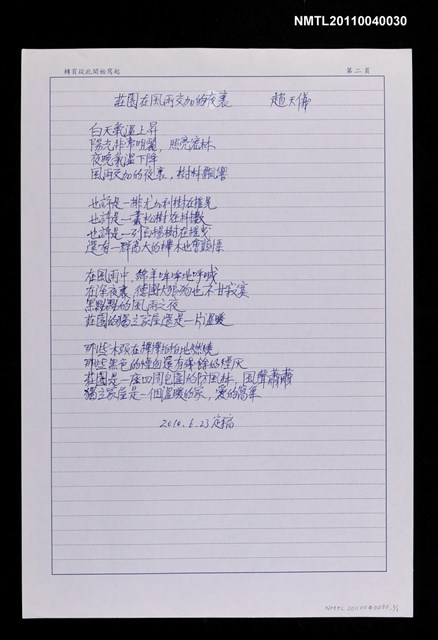 NMTL20110040030
轉頁從此開始寫起
第二頁
莊園在風雨交加的夜裏 趙天儀
白天氣溫上昇
陽光非常明麗，照亮森林
夜晚氣溫下降
風雨交加的夜裏，樹林飄響
也許是一排尤加利樹在搖晃
也許是一叢松樹在抖擻
也許是一列白楊樹在搖曳
還有一群高大的樺木也會顫慄
在風雨中，綿羊咩咩地呼喊
在深夜裏，德國大狼狗也不甘寂寞
黑黝黝的風雨之夜
莊園的獨立家屋還是一片溫暖
那些木炭在 地燃燒
那些黑色的煙囪還有殘餘的煙灰
莊園是一座四周包圍的防風林，風聲蕭蕭
獨立家屋是一個溫暖的家，愛的窩巢
2010.6.23定稿
NMTL20110040030